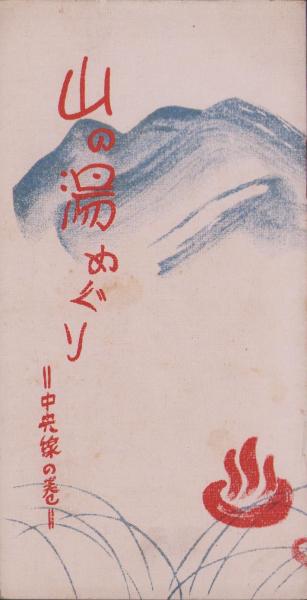 山の湯めぐり
＝中央線の巻＝